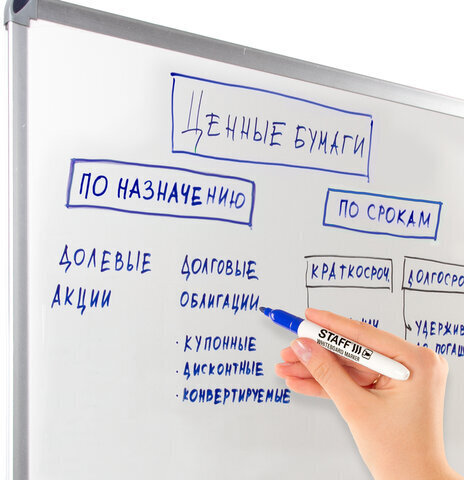 ЦЕННЫЕ БУМАГИ
ПО НАЗНАЧЕНИЮ
ПО СРОКАМ
ДОЛЕВЫЕ
АКЦИИ
ДОЛГОВЫЕ
ОБЛИГАЦИИ
· КУПОННЫЕ
· ДИСКОНТНЫЕ
· КОНВЕРТИРУЕМЫЕ
КРАТКОСРОЧ.
ДОЛГОСРО
УДЕРЖИВ
ПОГАШ
STAFF
WHITEBOARD MARKER